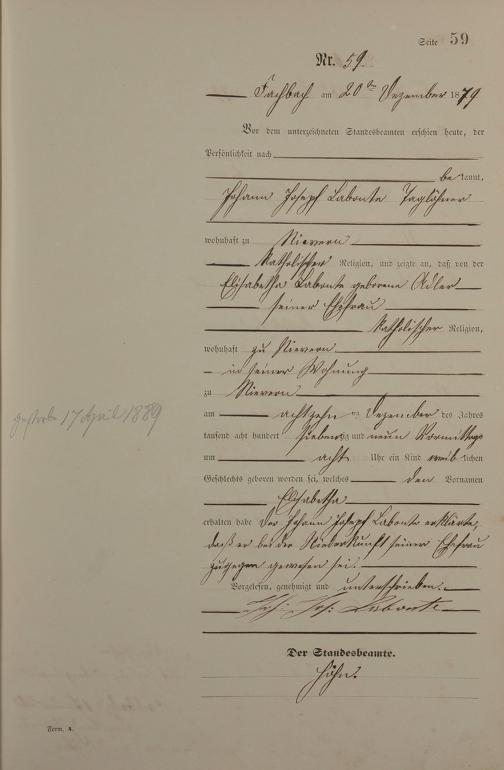 Seite 59
Nr. 59.
Fachbach am 20ten Dezember 1879
Vor dem unterzeichneten Standesbeamten erschien heute, der
Persönlichkeit nach
bekannt,
Johann Josepf Labonte Taglöhner
wohnhaft zu Nievern
Katholischer Religion, und zeigte an, daß von der
Elisabetha Labonte geborene Adler
seiner Ehefrau
Katholischer Religion,
wohnhaft zu Nievern
in seiner Wohnung
zu Nievern
am achtzehn ten Dezember des Jahres
tausend acht hundert siebenzig und neun Vormittags
um acht Uhr ein Kind weiblichen
Geschlechts geboren worden sei, welches den Vornamen
Elisabetha
erhalten habe Der Johann Josepf Labonte erklärte,
daß er bei der Niederkunft seiner Ehefrau
zugegen gewesen sei.
Vorgelesen, genehmigt und unterschrieben.
Joh: Jos: Labonte
Der Standesbeamte.
Höhn.
gestorben 17 April 1889
Form. A.